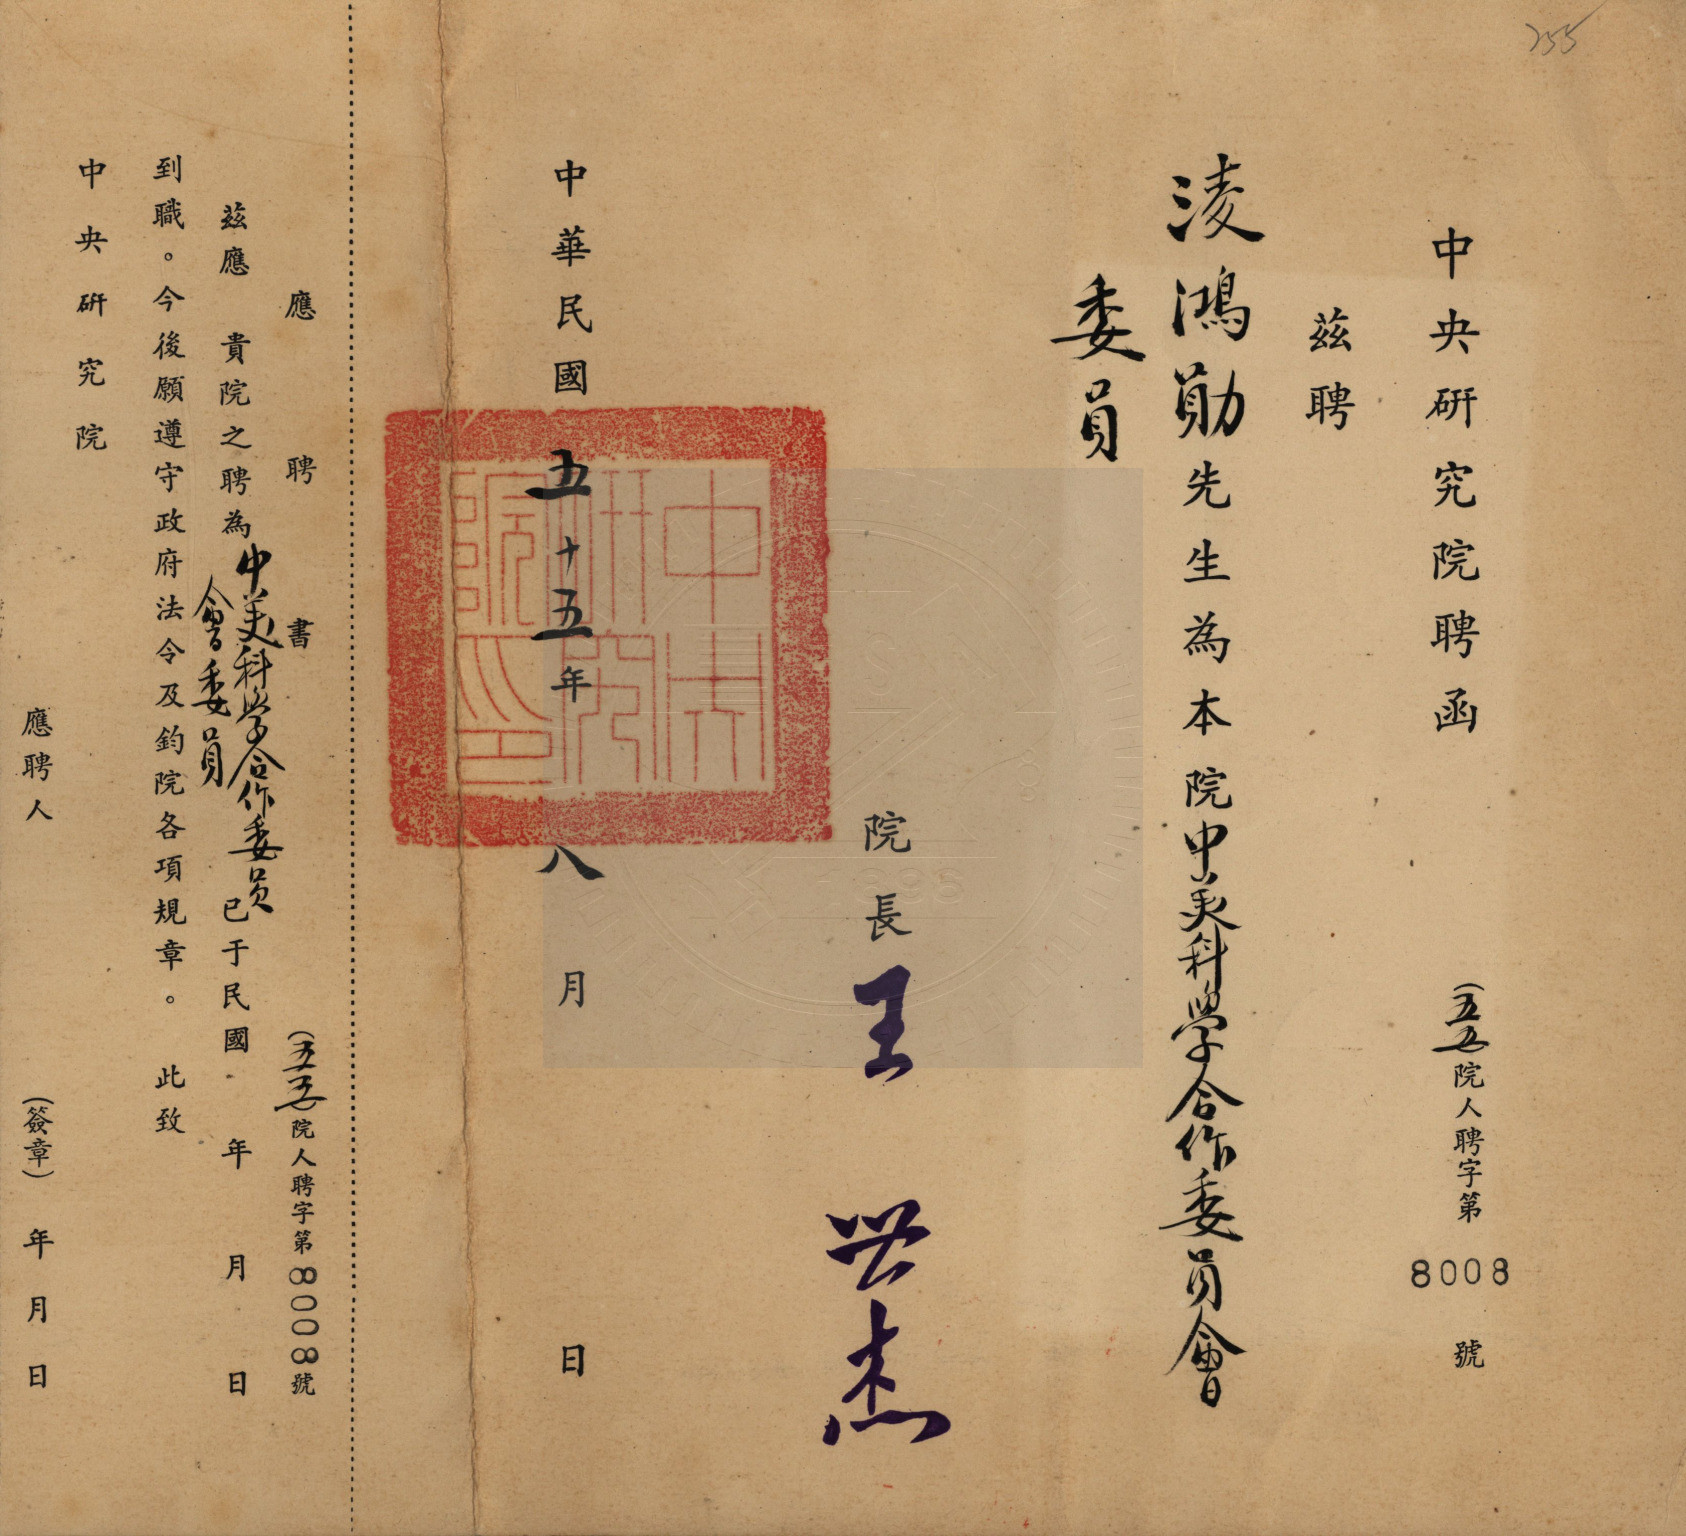 255
中央研究院聘函
(五五)院人聘字第8008號
茲聘
淩鴻勛先生為本院中美科學合作委員會
委員
院長王世杰
中華民國五十五年八月日
中央研究院印
應聘書
(五五)院人聘字第8008號
茲應 貴院之聘為中美科學合作委員
會委員
已于民國 年 月 日
到職。今後願遵守政府法令及鈞院各項規章。 此致
中央研究院
應聘人 (簽章) 年 月 日